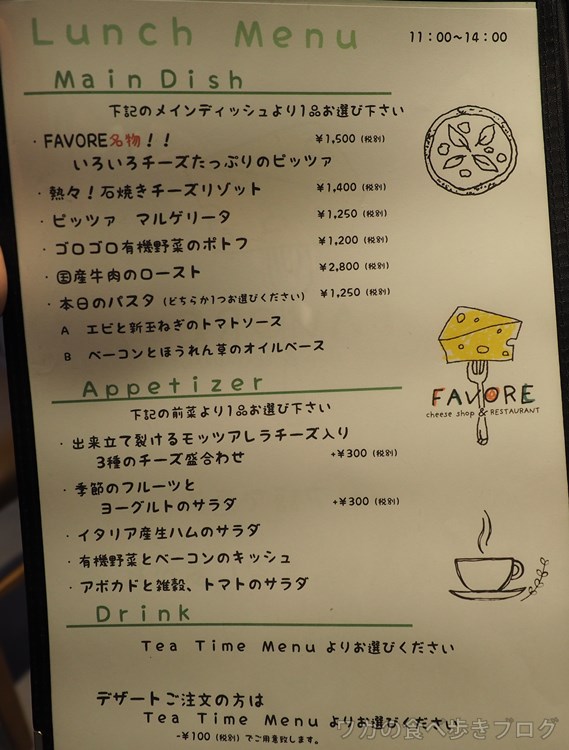 Lunch Menu 11:00~14:00
Main Dish
下記のメインディッシュより1品お選び下さい
・FAVORE名物!! ¥1,500 (税別)
いろいろチーズたっぷりのピッツァ
・熱々!石焼きチーズリゾット ¥1,400 (税別)
・ピッツァ マルゲリータ ¥1,250 (税別)
・ゴロゴロ有機野菜のポトフ ¥1,200 (税別)
・国産牛肉のロースト ¥2,800 (税別)
・本日のパスタ (どちらか1つお選びください) ¥1,250 (税別)
A エビと新玉ねぎのトマトソース
B ベーコンとほうれん草のオイルベース
FAVORE
cheese shop & RESTAURANT
Appetizer
下記の前菜より1品お選び下さい
・出来立て裂けるモッツアレラチーズ入り
3種のチーズ盛合わせ +¥300 (税別)
・季節のフルーツと
ヨーグルトのサラダ +¥300 (税別)
・イタリア産生ハムのサラダ
・有機野菜とベーコンのキッシュ
・アボカドと雑穀、トマトのサラダ
Drink
Tea Time Menu よりお選びください
デザートご注文の方は
Tea Time Menu よりお選びください
-¥100 (税別) でご用意致します。
ワガの食べ歩きブログ